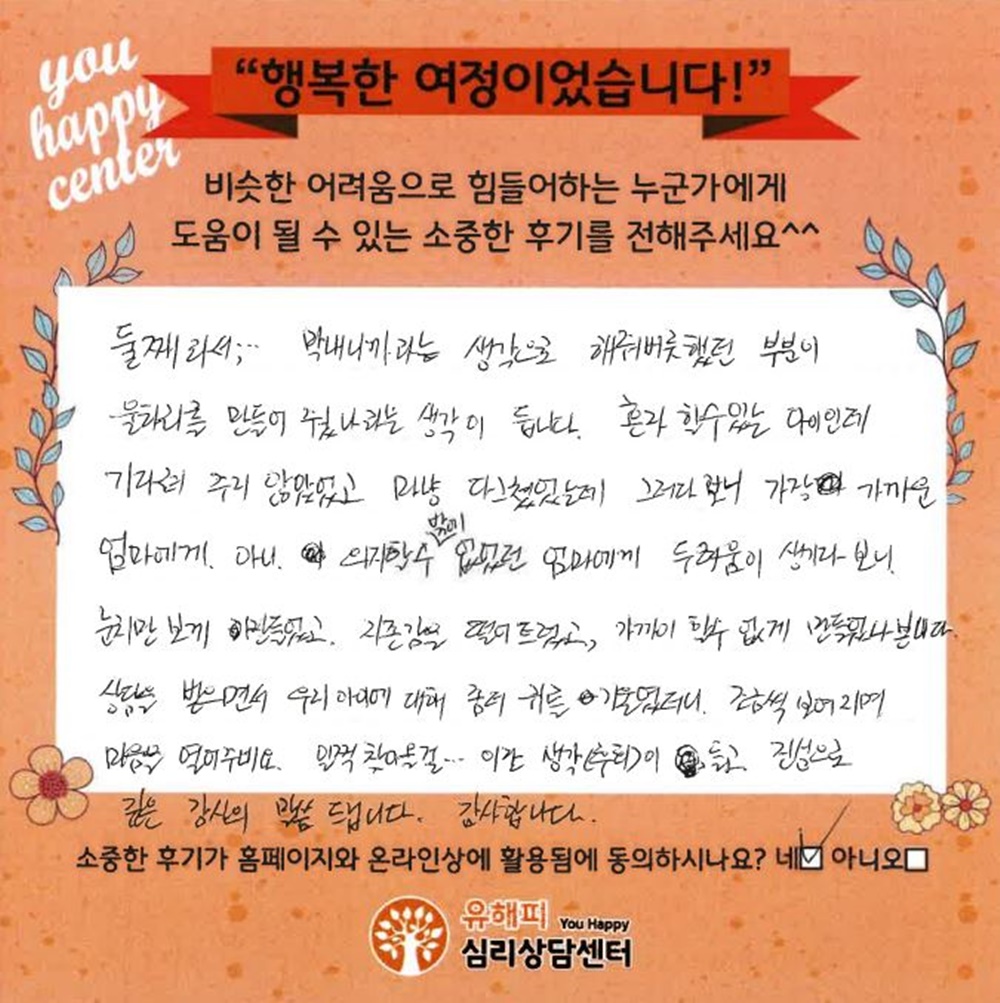 you
happy
center
“행복한 여정이었습니다!”
비슷한 어려움으로 힘들어하는 누군가에게
도움이 될 수 있는 소중한 후기를 전해주세요^^
둘째라서;… 막내니까라는 생각으로 해줘버릇했던 부분이
울타리를 만들어 주었나라는 생각이 듭니다. 혼자 할수있는 나이인데
기다려 주지 않았었고 마냥 다그쳤었는데 그러다보니 가장 가까운
엄마에게. 아니. 의지할수 밖에 없었던 엄마에게 두려움이 생기다 보니.
눈치만 보게 만들었고. 자존감을 떨어트렸고, 가까이 할수 없게 만들었나 봅니다.
상담을 받으면서 우리아이에 대해 좀더 귀를 기울였더니. 조금씩 보여지며
마음을 열어주네요. 일찍 찾아올걸… 이란 생각(후회)이 들고. 진심으로
깊은 감사의 말씀 드립니다. 감사합니다.
소중한 후기가 홈페이지와 온라인상에 활용됨에 동의하시나요? 네☑ 아니오☐
유해피 You Happy
심리상담센터